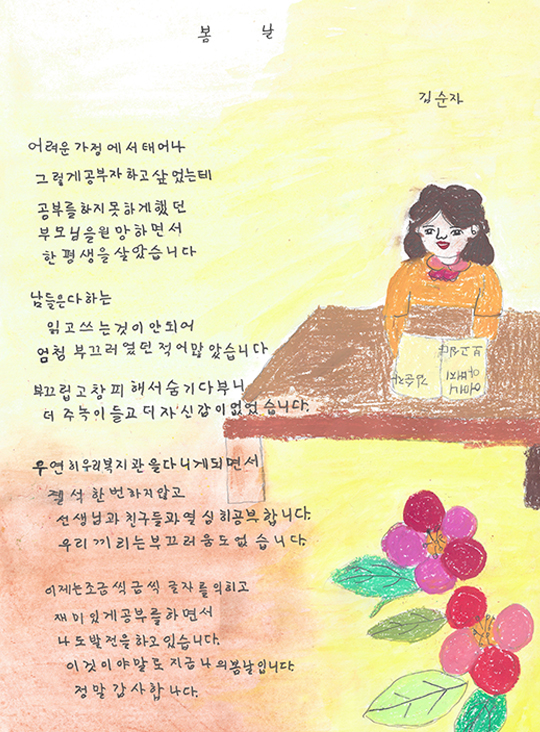 봄 날
김순자
어려운 가정에서 태어나
그렇게 공부자 하고 싶었는테
공부를 하지 못하게 했던
부모님을 원망하면서
한 평생을 살았습니다
남들은 다 하는
읽고 쓰는 것이 안되어
엄청 부끄러웠던 적이 많았습니다
부끄럽고 창피해서 숨기다 부니
더 주눅이 들고 더 자신감이 없었습니다.
우연히 우리복지관을 다니게 되면서
결석 한 번 하지 않고
선생님과 친구들과 열심히 공부합니다.
우리끼리는 부끄러움도 없습니다.
이제는 조금씩 금씩 글자를 익히고
재미있게 공부를 하면서
나도 발전을 하고 있습니다.
이것이야 말로 지금 나의 봄날입니다.
정말 감사합니다.
김순자
어머니
아버지
보고싶다